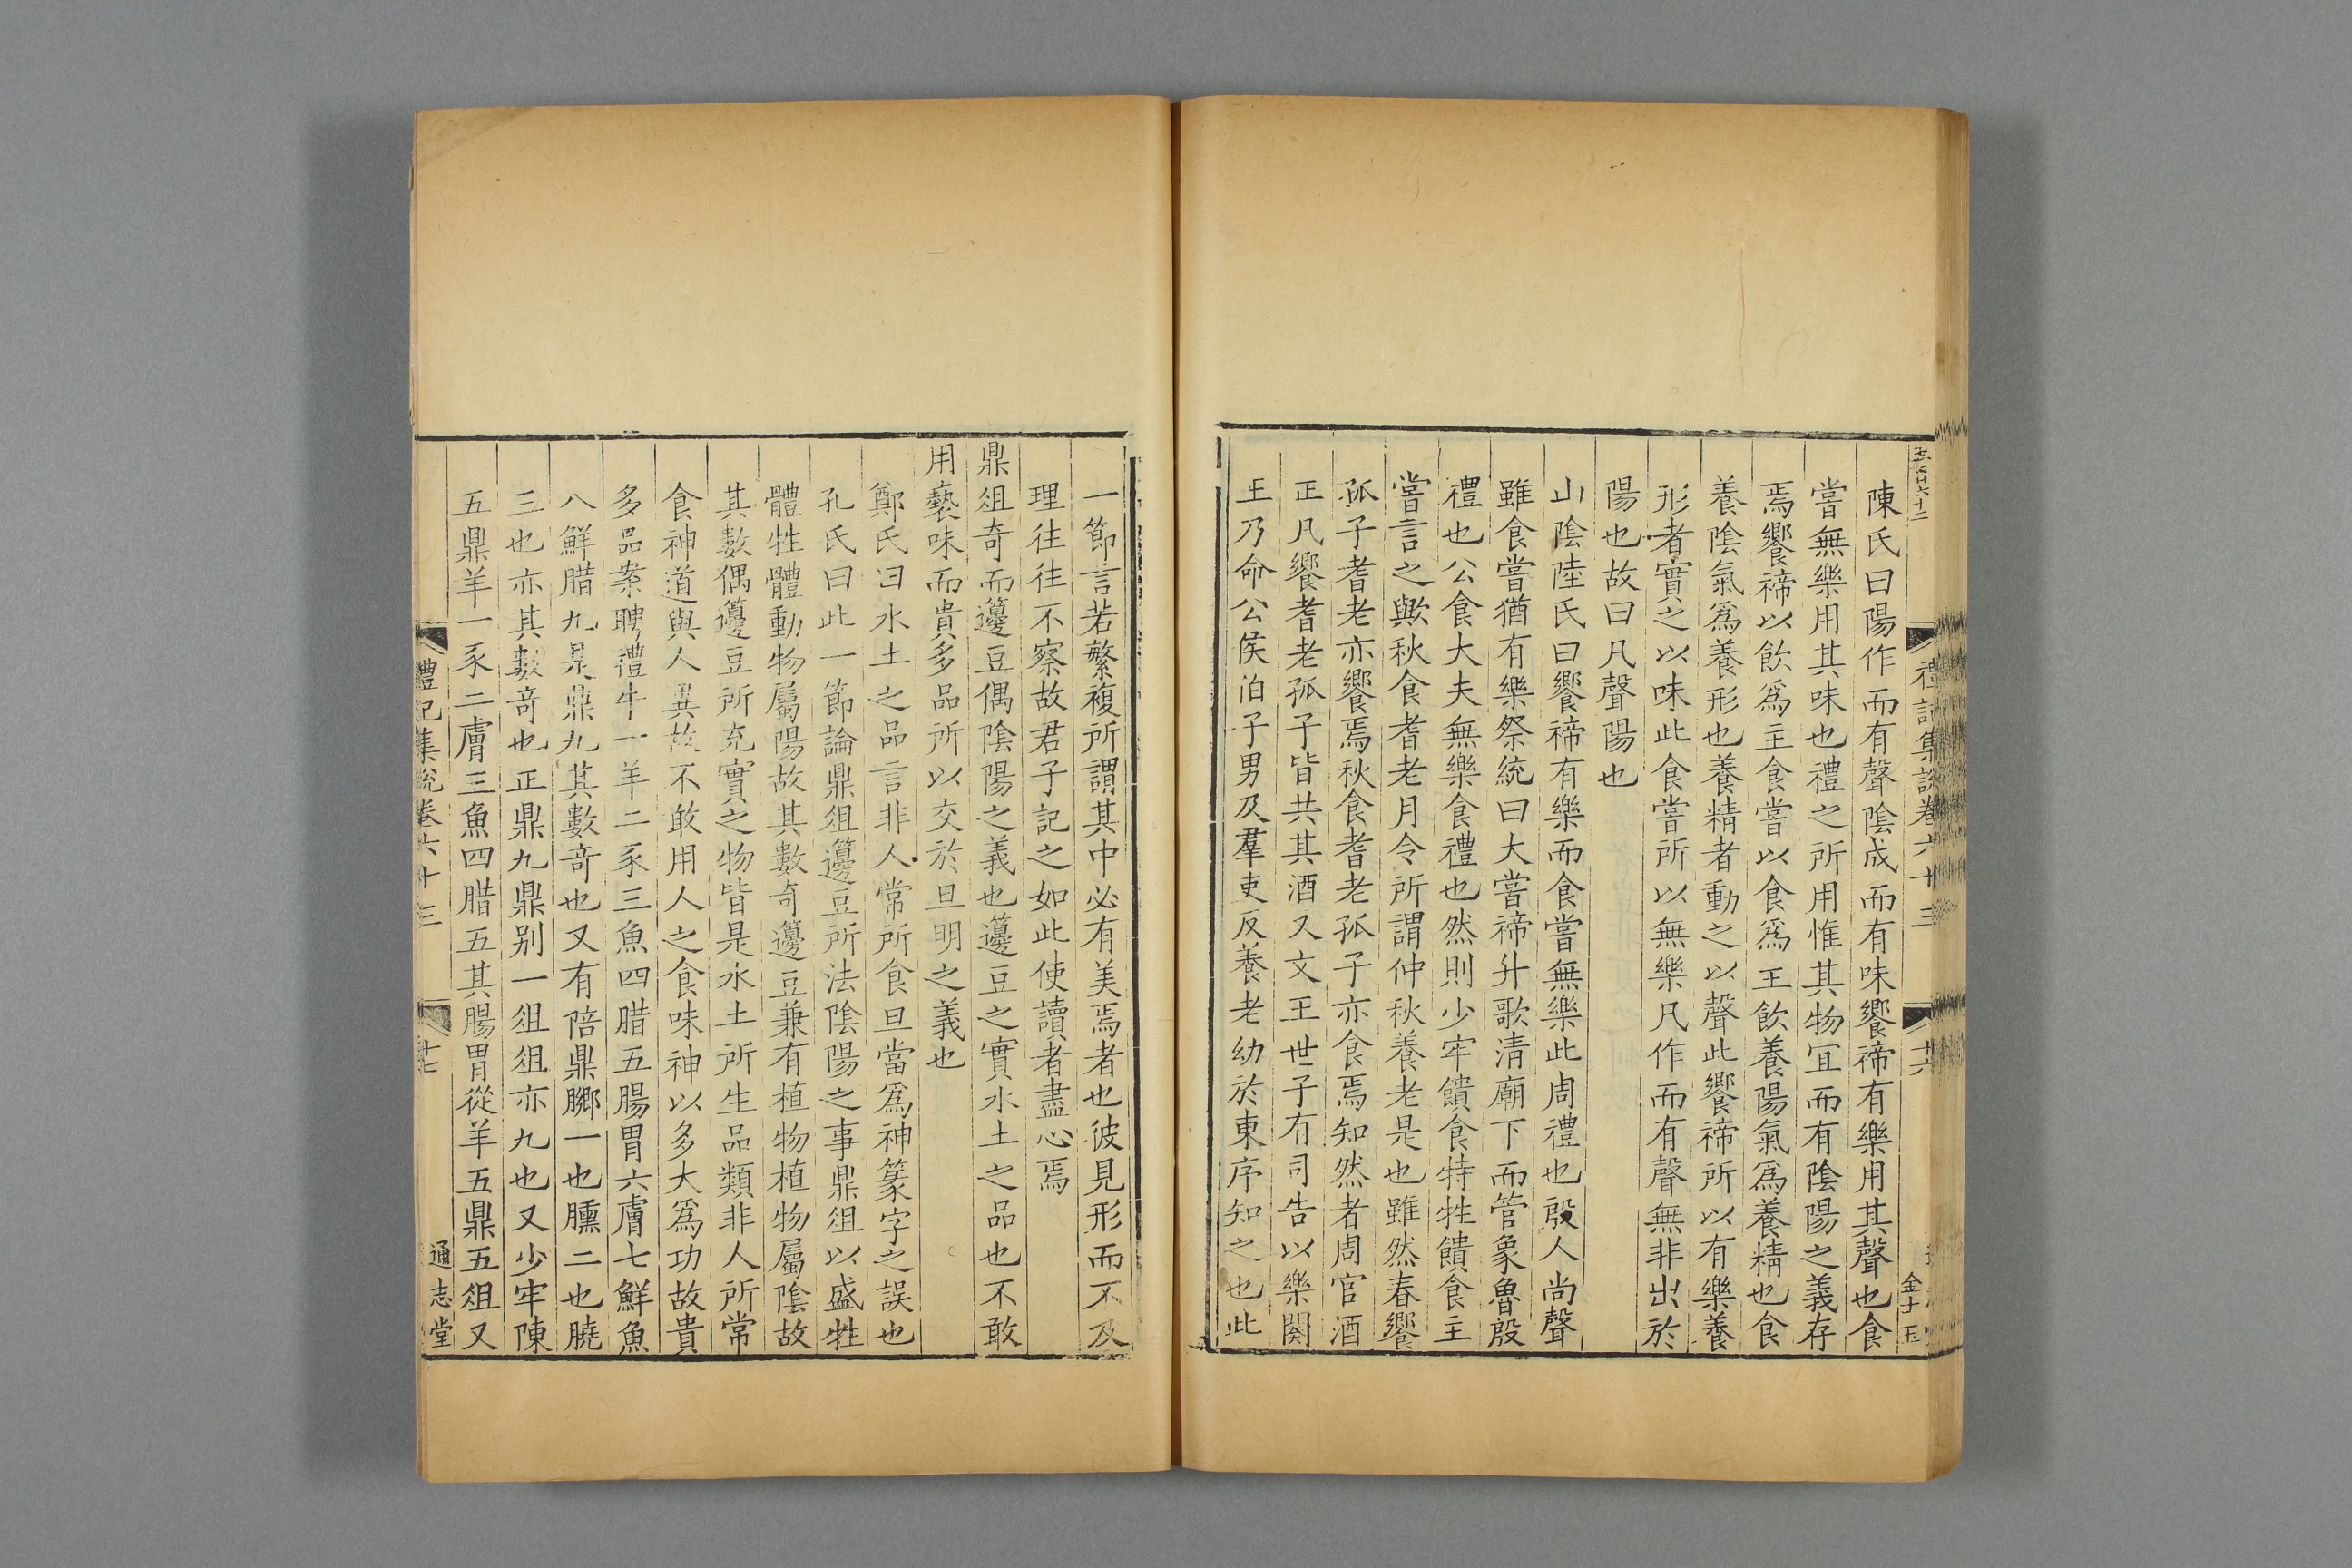 五百六十二
禮記集說卷六十三
十六
金子玉
陳氏曰陽作而有聲陰成而有味饗禘有樂用其聲也食
嘗無樂用其味也禮之所用惟其物宜而有陰陽之義存
焉饗禘以飲爲主食嘗以食爲王飲養陽氣爲養精也食
養陰氣爲養形也養精者動之以聲此饗禘所以有樂養
形者實之以味此食嘗所以無樂凡作而有聲無非出於
陽也故曰凡聲陽也
山陰陸氏曰饗禘有樂而食嘗無樂此周禮也殷人尚聲
雖食嘗猶有樂祭統曰大嘗禘升歌清廟下而管象魯殷
禮也公食大夫無樂食禮也然則少牢饋食特牲饋食主
嘗言之歟秋食耆老月令所謂仲秋養老是也雖然春饗
孤子耆老亦饗焉秋食耆老孤子亦食焉知然者周官酒
正凡饗耆老孤子皆共其酒又文王世子有司告以樂闋
王乃命公侯伯子男及羣吏反養老幼於東序知之也此
一節言若繁複所謂其中必有美焉者也彼見形而不及
理往往不察故君子記之如此使讀者盡心焉
鼎俎奇而籩豆偶陰陽之義也籩豆之實水土之品也不敢
用褻味而貴多品所以交於旦明之義也
鄭氏曰水土之品言非人常所食旦當爲神篆字之誤也
孔氏曰此一節論鼎俎籩豆所法陰陽之事鼎俎以盛牲
體牲體動物屬陽故其數奇籩豆兼有植物植物屬陰故
其數偶籩豆所充實之物皆是水土所生品類非人所常
食神道與人異故不敢用人之食味神以多大爲功故貴
多品案聘禮牛一羊二豕三魚四腊五腸胃六膚七鮮魚
八鮮腊九是鼎九其數奇也又有陪鼎膷一也臐二也膮
三也亦其數奇也正鼎九鼎别一俎俎亦九也又少牢陳
五鼎羊一豕二膚三魚四腊五其腸胃從羊五鼎五俎又
禮記集說卷六十三
十七
通志堂